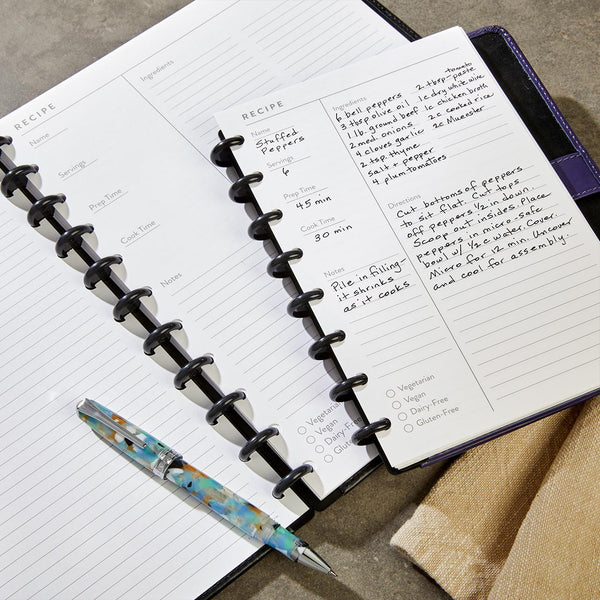 RECIPE
Name
Servings
Prep Time
Cook Time
Notes
Ingredients
Vegetarian
Vegan
Dairy-Free
Gluten-Free
RECIPE
Name
Stuffed
Peppers
Servings
6
Prep Time
45 min
Cook Time
30 min
Notes
Pile in filling-
it shrinks
as it cooks
Vegetarian
Vegan
Dairy-Free
Gluten-Free
Ingredients
6 bell peppers
3 tbsp olive oil
1 lb. ground beef
2 med onions
4 cloves garlic
2 tsp. thyme
salt + pepper
4 plum tomatoes
2 tbsp tomato paste
1c dry white wine
1c chicken broth
2c cooked rice
2c Muenster
Directions
Cut bottoms of peppers
to sit flat. Cut tops
off peppers 1/2 in down.
Scoop out insides. Place
peppers in micro-safe
bowl w/ 1/2 c water. Cover.
Micro for 12 min. Uncover
and cool for assembly.